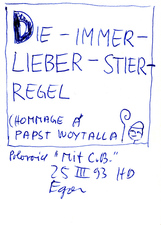 DIE - IMMER-
LIEBER - STIER-
REGEL
(HOMMAGE À
PAPST WOYTALLA)
"Mit C.B."
25 III 93 HD